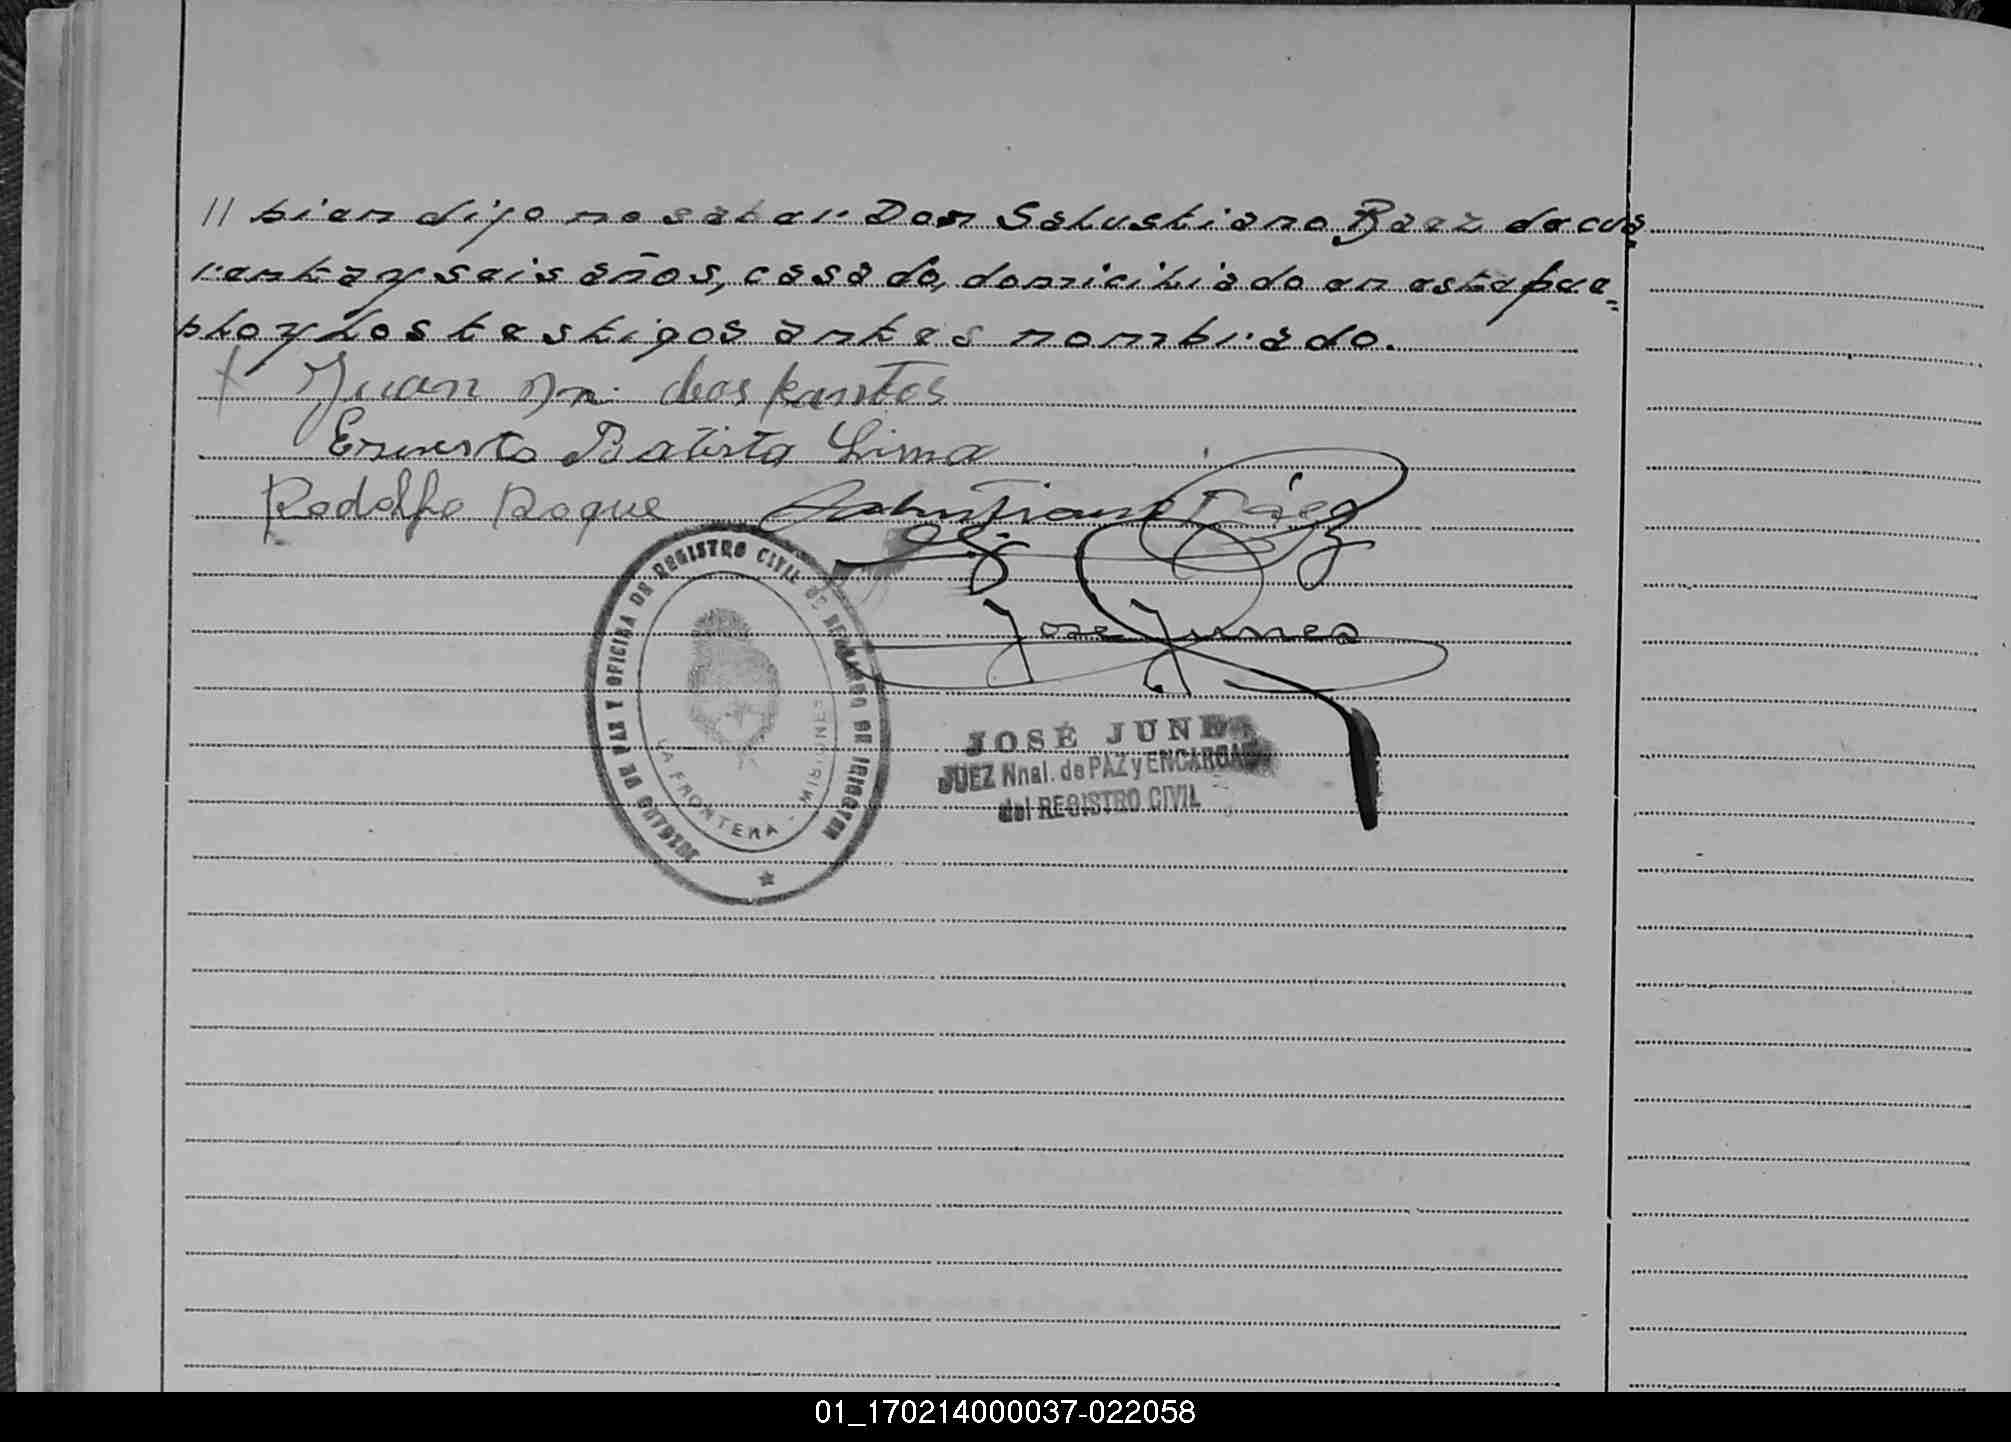 // bien dijo no saber Don Salustiano Baez de cua
renta y seis años, casado, domiciliado en este pue=
blo y los testigos antes nombrado.
Juan M. dos santos
Ernesto Batista Lima
Rodolfo Roque Salustiano Báez
Jose Junes
JUZGADO DE PAZ Y OFICINA DE REGISTRO CIVIL DE BERNARDO DE IRIGOYEN
LA FRONTERA - MISIONES
JOSÉ JUNES
JUEZ Nnal. de PAZ y ENCARGADO
del REGISTRO CIVIL
01_170214000037-022058